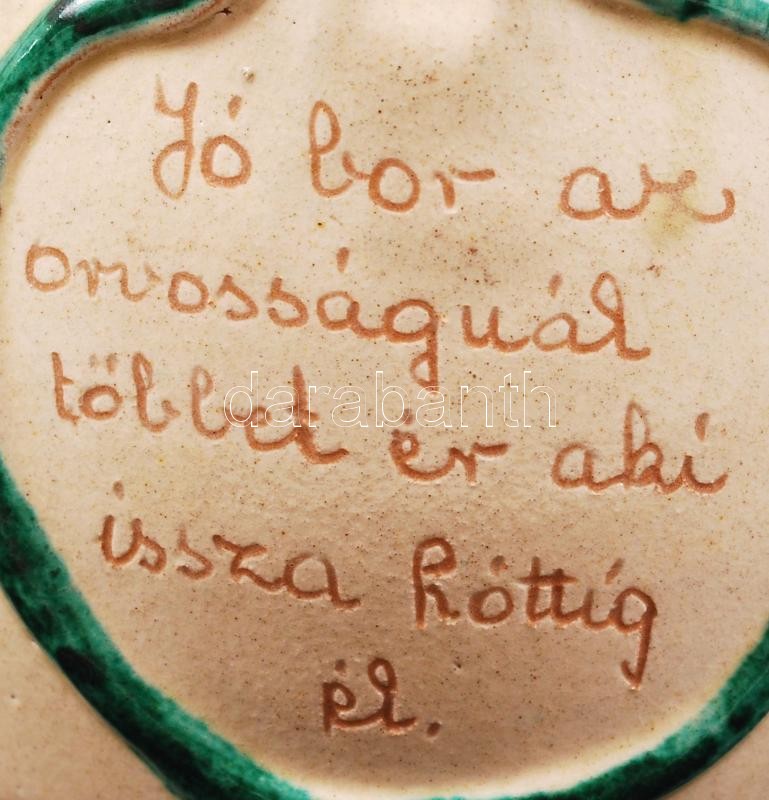 Jó bor az
orvosságnál
többet ér aki
issza hóttig
él.
darabanth